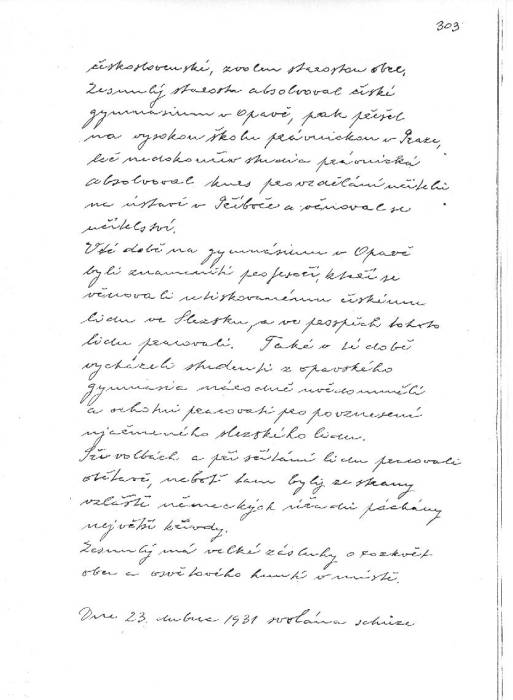 303
československé, zvolen starostou obce.
Zesnulý starosta absolvoval české
gymnásium v Opavě, pak přešel
na vysokou školu právnickou v Praze,
leč nedokončiv studia právnická
absolvoval kurs pro vzdělání učitelů
na ústavě v Příboře a věnoval se
učitelství.
V té době na gymnásium v Opavě
byli znamenití profesoři, kteří se
věnovali utiskovanému českému
lidu ve Slezsku, a ve prospěch tohoto
lidu pracovali. Také v té době
vycházeli studenti z opavského
gymnasia národně uvědomnělí
a ochotni pracovati pro povznesení
ujařmeného slezského lidu.
Při volbách a při sčítání lidu pracovali
obětavě, neboť tam byly ze strany
vzláště německých úřadů páchány
největší křivdy.
Zesnulý má velké zásluhy o rozkvět
obce a osvětového hnutí v místě.
Dne 23. dubna 1931 svolána schůze